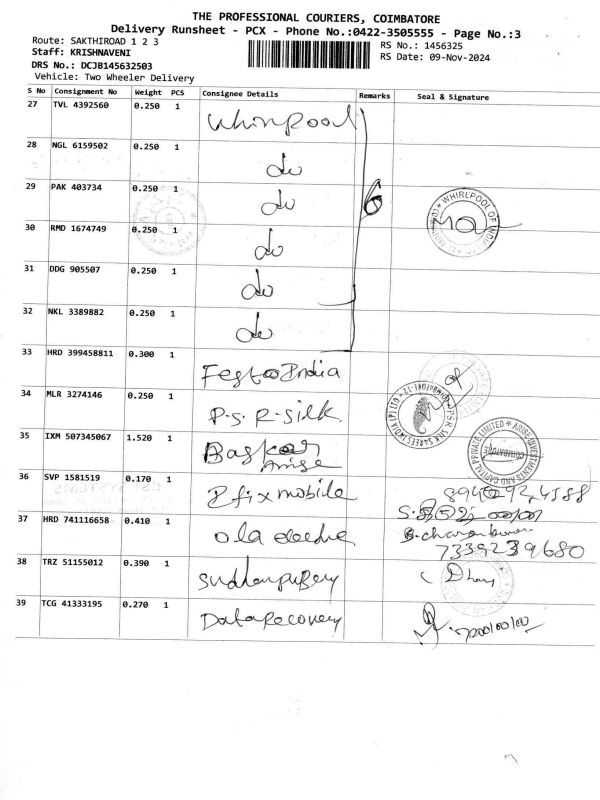 THE PROFESSIONAL COURIERS, COIMBATORE
Delivery Runsheet - PCX - Phone No.:0422-3505555 - Page No.:3
Route: SAKTHIROAD 1 2 3
RS No.: 1456325
Staff: KRISHNAVENI
RS Date: 09-Nov-2024
DRS No.: DCJB145632503
Vehicle: Two Wheeler Delivery
S No Consignment No Weight PCS Consignee Details Remarks Seal & Signature
27 TVL 4392560 0.250 1 Whirlpool
28 NGL 6159502 0.250 1 do
29 PAK 403734 0.250 1 do 6 WHIRLPOOL OF INDIA
30 RMD 1674749 0.250 1 do
31 DDG 905507 0.250 1 do
32 NKL 3389882 0.250 1 do
33 HRD 399458811 0.300 1 Festoo India
34 MLR 3274146 0.250 1 P.S.R-Silk P.S.R. SILK SAREES INDIA (P) LTD COIMBATORE-12
35 IXM 507345067 1.520 1 Baskar Arise ARISE INVESTMENTS AND CAPITAL PRIVATE LIMITED COIMBATORE
36 SVP 1581519 0.170 1 Zfix mobile
37 HRD 741116658 0.410 1 ola S.charan
7339239680
38 TRZ 51155012 0.390 1
39 TCG 41333195 0.270 1 Datarecovery